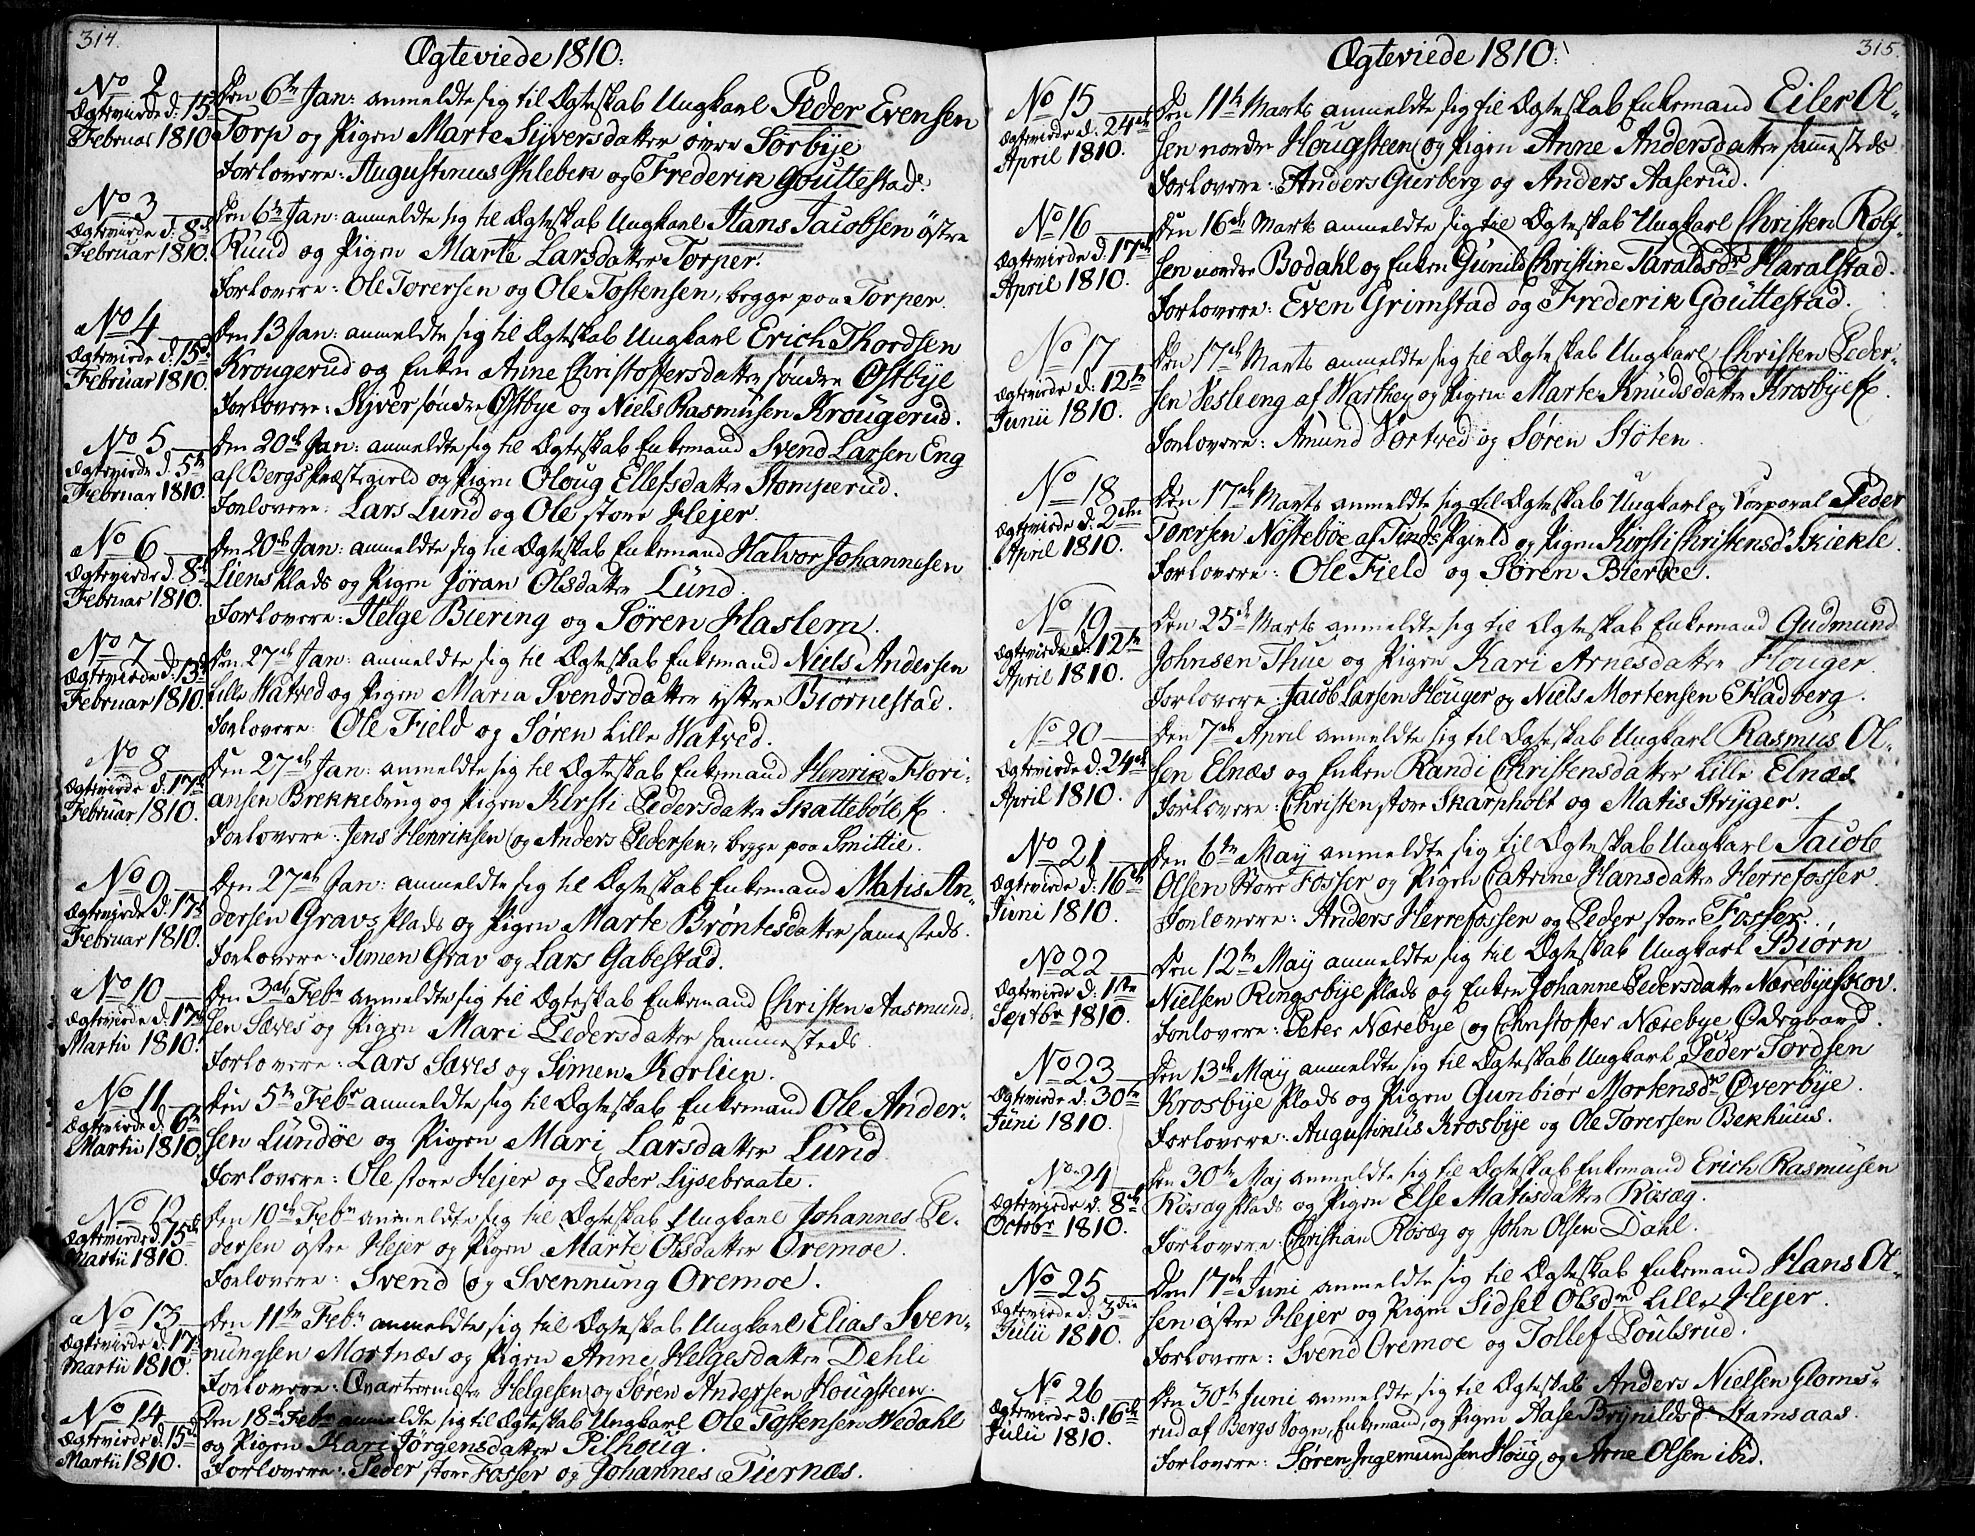 314.
Ægteviede 1810.
No 2
Ægteviede d. 15de
Februar 1810
Den 6te Jan: anmeldte sig til Ægteskab Ungkarl Peder Evensen
Torp og Pigen Marte Siversdatter övre Sörbye
Forlovere: Augustinus Klebek og Frederik Gouttestad.
No 3
Ægteviede d. 8de
Februar 1810.
Den 6te Jan: anmeldte sig til Ægteskab Ungkarl Hans Jacobsen östre
Ruud og Pigen Marte Larsdatter Torper.
Forlovere: Ole Torersen og Ole Tostensen, begge paa Torper.
No 4
Ægteviede d. 15de
Februar 1810.
Den 13 Jan: anmeldte sig til Ægteskab Ungkarl Erich Thordsen
Krougerud og Enken Anne Christoffersdatter söndre Östbye
Forlovere: Syver söndre Östbye og Niels Rasmusen Krougerud.
No 5
Ægteviede d. 5te
Februar 1810.
Den 20de Jan: anmeldte sig til Ægteskab Enkemand Svend Larsen Eng
af Bergs Præstegield og Pigen Oloug Ellefsdatter Stomperud.
Forlovere: Lars Lund og Ole store Hejer.
No 6
Ægteviede d. 8de
Februar 1810.
Den 20de Jan: anmeldte sig til Ægteskab Enkemand Halvor Johannesen
Liens Plads og Pigen Jöran Olsdatter Lund.
Forlovere: Helge Biering og Sören Haslem.
No 7
Ægteviede d. 13de
Februar 1810.
Den 27de Jan: anmeldte sig til Ægteskab Enkemand Niels Andersen
lille Watved og Pigen Maria Svendsdatter ystre Biörnestad.
Forlovere: Ole Field og Sören Lille Watved.
No 8
Ægteviede d. 17de
Februar 1810.
Den 27de Jan: anmeldte sig til Ægteskab Enkemand Henrik Flori-
ansen Brekkebrug og Pigen Kirsti Pedersdatter Skattebøl
Forlovere: Jens Henriksen og Anders Pedersen, begge paa Smittie.
No 9
Ægteviede d. 17de
Februar 1810.
Den 27de Jan: anmeldte sig til Ægteskab Enkemand Matis An-
dersen Gravs Plads og Pigen Marte Bröntesdatter samesteds.
Forlovere: Simen Grav og Lars Gabestad.
No 10
Ægteviede d. 17de
Martii 1810.
Den 3de Febr anmeldte sig til Ægteskab Enkemand Christen Aasmund-
sen Sæves og Pigen Mari Pedersdatter sammesteds.
Forlovere: Lars Sæves og Simen Korlien.
No 11
Ægteviede d. 6te
Martii 1810.
Den 5te Febr anmeldte sig til Ægteskab Enkemand Ole Ander-
sen Lundöe og Pigen Mari Larsdatter Lund.
Forlovere: Ole store Hejer og Peder Lysebraate.
No 12
Ægteviede d. 15de
Martii 1810.
Den 10de Febr anmeldte sig til Ægteskab Ungkarl Johannes Pe-
dersen östre Hejer og Pigen Marte Olsdatter Oremoe.
Forlovere: Svend og Svennung Oremoe.
No 13
Ægteviede d. 17de
Martii 1810.
Den 11te Febr anmeldte sig til Ægteskab Ungkarl Elias Sven-
nungsen Mortnæs og Pigen Anne Helgesdatter Dehli
Forlovere: Qvartermester Helgesen og Sören Andersen Hougsteen.
No 14
Ægteviede d. 15de
Martii 1810.
Den 18de Febr anmeldte sig til Ægteskab Ungkarl Ole Tostensen Wedahl
og Pigen Kari Jörgensdatter Pilhoug.
Forlovere: Peder store Fosser og Johannes Tiernæs.
315.
Ægteviede 1810.
No 15
Ægteviede d. 24de
April 1810.
Den 11te Marts anmeldte sig til Ægteskab Enkemand Eiler Ol-
sen nordre Hougsteen og Pigen Anne Andersdatter sammesteds
Forlovere: Anders Gurberg og Anders Aaserud.
No 16
Ægteviede d. 17de
April 1810.
Den 16de Marts anmeldte sig til Ægteskab Ungkarl Christen Rolf-
sen nordre Bodahl og Enken Gunild Christine Taraldsdr Haralstad.
Forlovere: Even Grimstad og Frederik Gouttestad.
No 17
Ægteviede d. 12te
Junii 1810.
Den 17de Marts anmeldte sig til Ægteskab Ungkarl Christen Peder-
sen Vesleeng af Warthey og Pigen Marte Knudsdatter Krosbye
Forlovere: Amund Vortved og Sören Stöten.
No 18
Ægteviede d. 2den
April 1810.
Den 17de Marts anmeldte sig til Ægteskab Ungkarl og Corporal Peder
Toersen Nöstebøe af Tinds Pgield og Pigen Kirsti Christensdr Skiekle.
Forlovere: Ole Field og Sören Bierke.
No 19
Ægteviede d. 12te
April 1810.
Den 25de Marts anmeldte sig til Ægteskab Enkemand Gudmund
Johnsen Thue og Pigen Kari Arnesdatter Houger
Forlovere: Jacob Larsen Houger og Niels Mortensen Fladberg.
No 20
Ægteviede d. 24de
April 1810.
Den 7de April anmeldte sig til Ægteskab Ungkarl Rasmus Ol-
sen Elnæs og Enken Randi Christensdatter Lille Elnæs
Forlovere: Christen store Skarpholt og Matis Stryger.
No 21
Ægteviede d. 16de
Juni 1810.
Den 6te May anmeldte sig til Ægteskab Ungkarl Jacob
Olsen Store Fosser og Pigen Catrine Hansdatter Herrefosser
Forlovere: Anders Herrefosser og Peder store Fosser.
No 22
Ægteviede d. 1ste
Septbr 1810.
Den 12te May anmeldte sig til Ægteskab Ungkarl Biörn
Nielsen Ringsbye Plads og Enken Johanne Pedersdatter NærebyeSkov.
Forlovere: Peter Nærebye og Christoffer Nærebye Ödegaard.
No 23
Ægteviede d. 30te
Juni 1810.
Den 13de May anmeldte sig til Ægteskab Ungkarl Peder Tordsen
Krosbye Plads og Pigen Gunbior Mortensdr Överbye.
Forlovere: Augustinus Krosbye og Ole Torersen Bekhuus.
No 24
Ægteviede d. 8de
Octobr 1810.
Den 30te Maj anmeldte sig til Ægteskab Enkemand Erich Rasmusen
Rösæg Plads og Pigen Else Matisdatter Rösæg.
Forlovere: Christian Rösæg og John Olsen Dahl.
No 25
Ægteviede d. 3die
Julii 1810.
Den 17de Juni anmeldte sig til Ægteskab Enkemand Hans Ol-
sen östre Hejer og Pigen Sidsel Olsdr Lille Hejer.
Forlovere: Svend Oremoe og Tollef Poulsrud.
No 26
Ægteviede d. 16de
Julii 1810.
Den 30te Juni anmeldte sig til Ægteskab Anders Nielsen Gloms-
rud af Bergs Sogn, Enkemand, og Pigen Aase Brynildsdr Stamsaas.
Forlovere: Sören Ingemundsen Houg og Arne Olsen ibid.